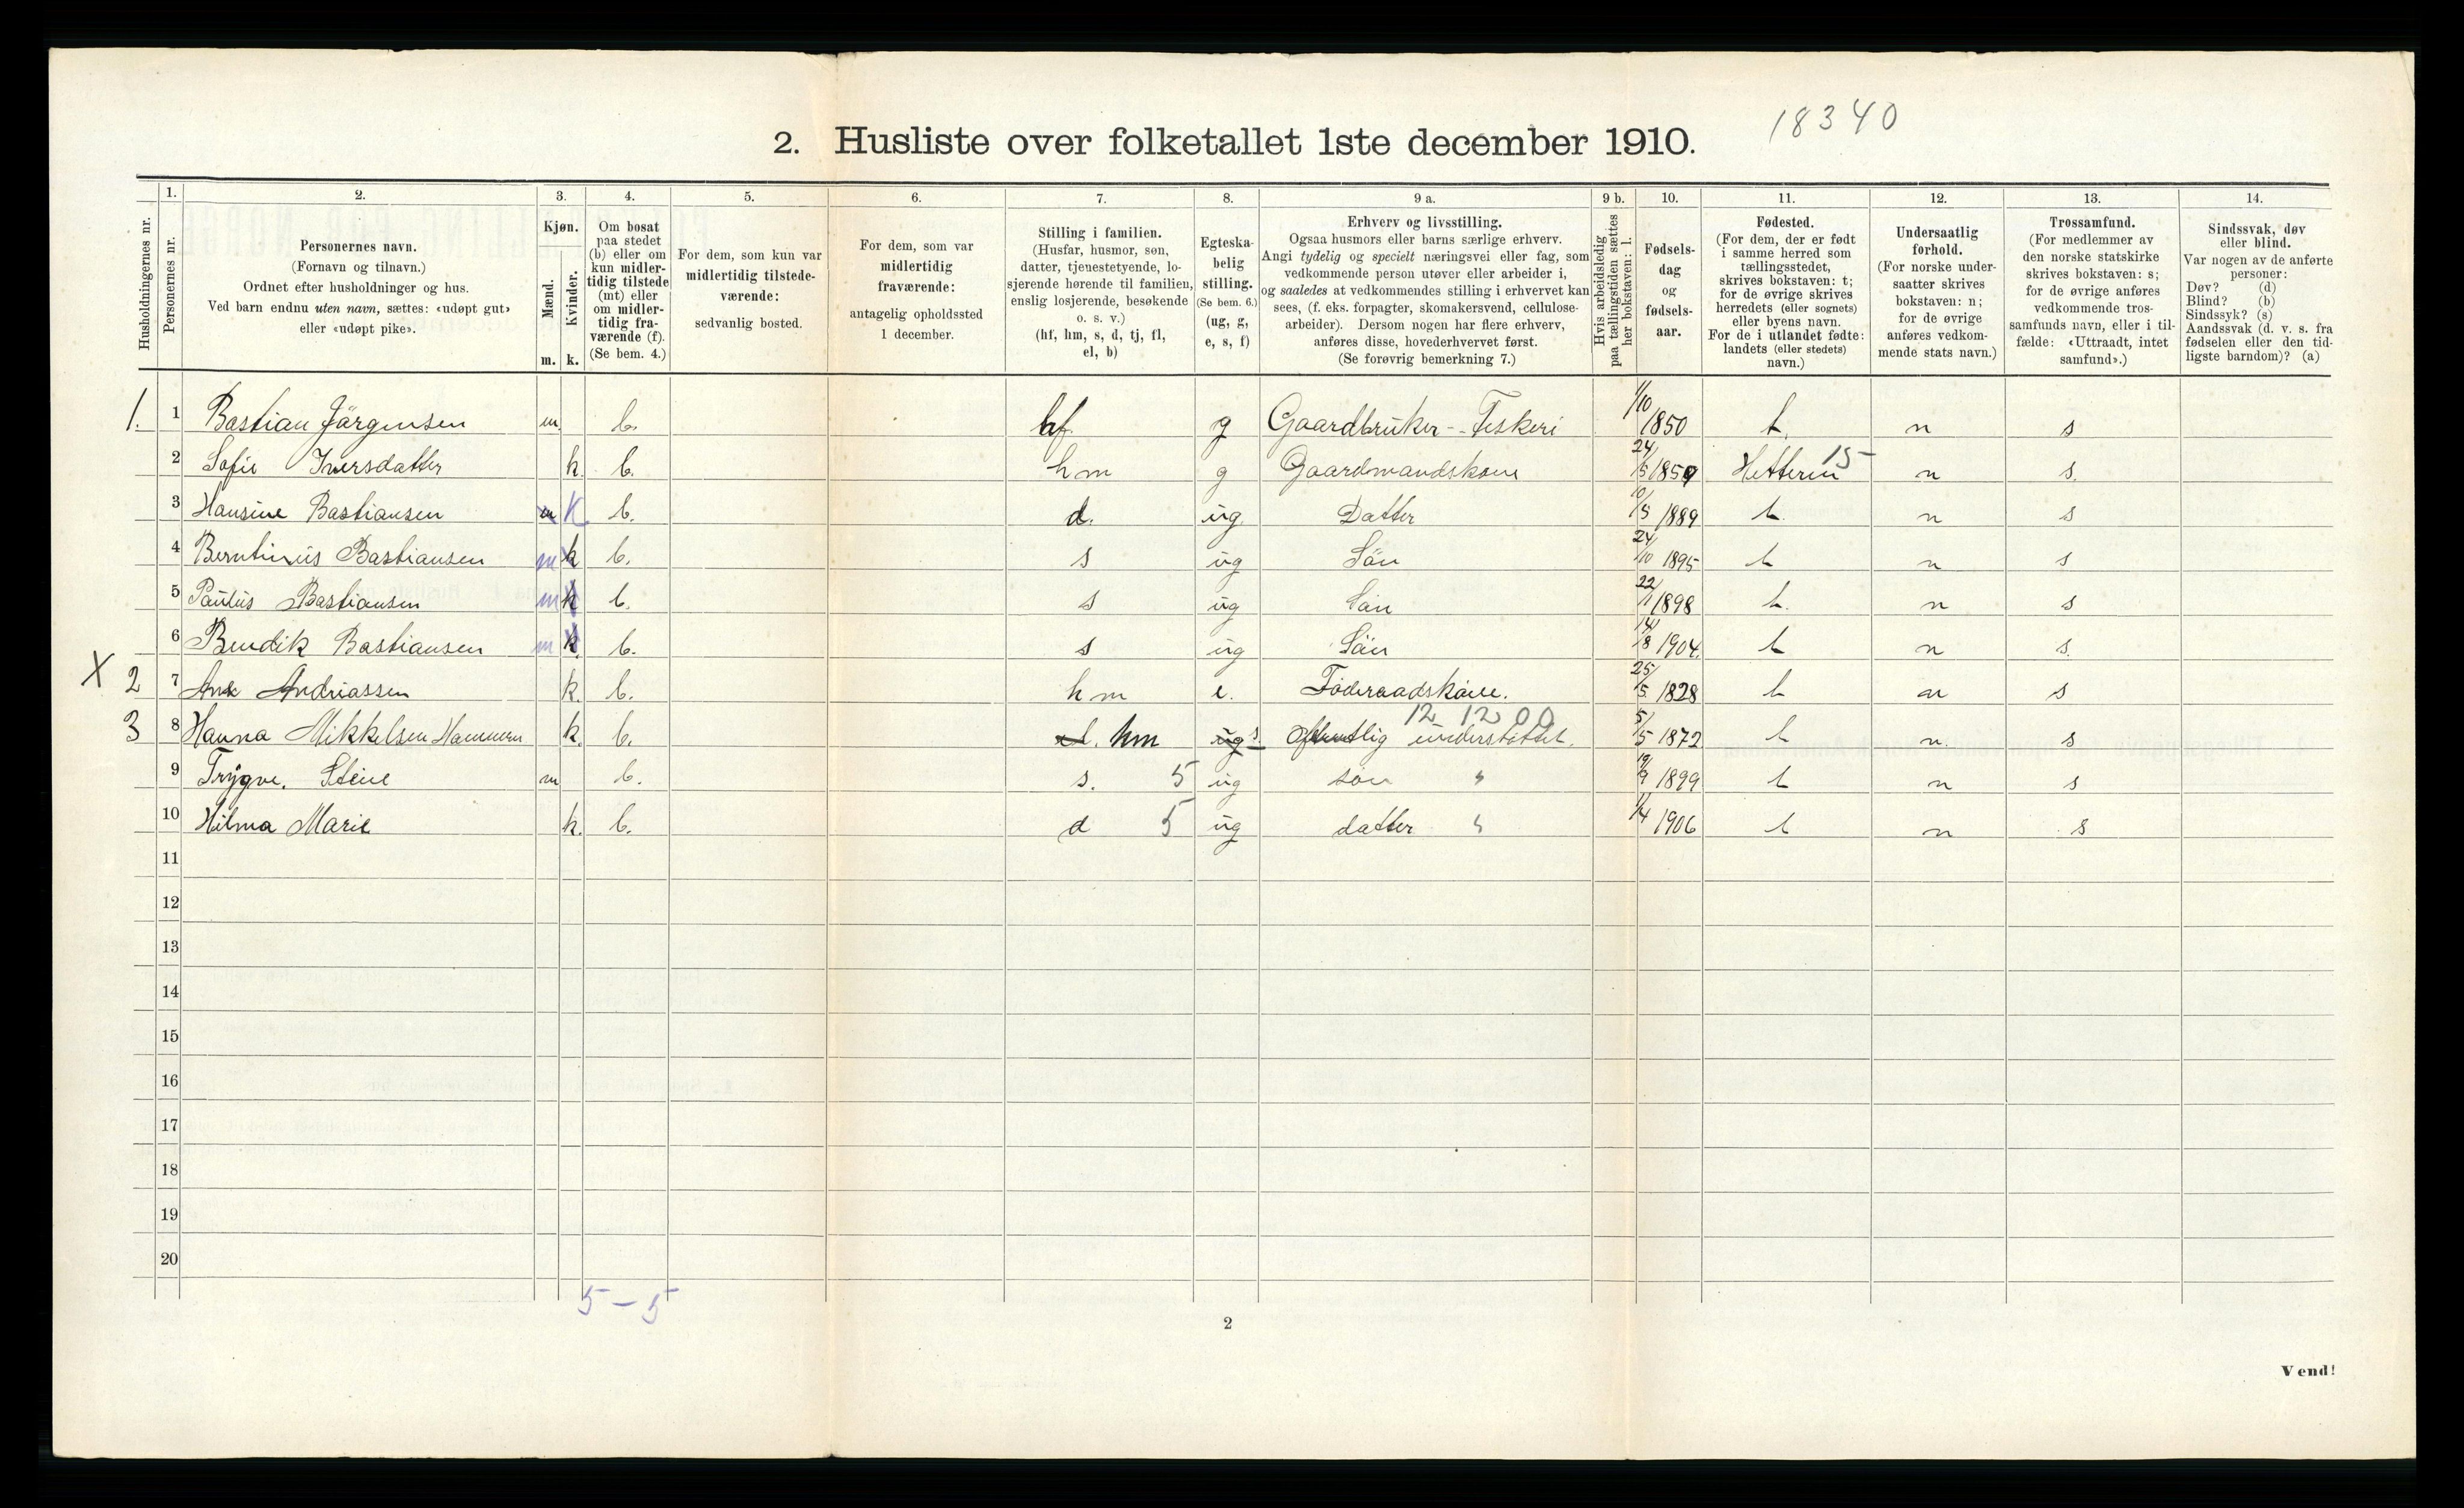 18340
2. Husliste over folketallet 1ste december 1910.
Husholdningernes nr.
1. Personernes nr.
2. Personernes navn.
(Fornavn og tilnavn.)
Ordnet efter husholdninger og hus.
Ved barn endnu uten navn, sættes: «udøpt gut»
eller «udøpt pike».
3. Kjøn.
Mænd. Kvinder.
m. k.
4. Om bosat
paa stedet
(b) eller om
kun midler-
tidig tilstede
(mt) eller
om midler-
tidig fra-
værende (f).
(Se bem. 4.)
5. For dem, som kun var
midlertidig tilstede-
værende:
sedvanlig bosted.
6. For dem, som var
midlertidig
fraværende:
antagelig opholdssted
1 december.
7. Stilling i familien.
(Husfar, husmor, søn,
datter, tjenestetyende, lo-
sjerende hørende til familien,
enslig losjerende, besøkende
o. s. v.)
(hf, hm, s, d, tj, fl,
el, b)
8. Egteska-
belig
stilling.
(Se bem. 6.)
(ug, g,
e, s, f)
9 a. Erhverv og livsstilling.
Ogsaa husmors eller barns særlige erhverv.
Angi tydelig og specielt næringsvei eller fag, som
vedkommende person utøver eller arbeider i,
og saaledes at vedkommendes stilling i erhvervet kan
sees, (f. eks. forpagter, skomakersvend, cellulose-
arbeider). Dersom nogen har flere erhverv,
anføres disse, hovederhvervet først.
(Se forøvrig bemerkning 7.)
9 b. Hvis arbeidsledig
paa tællingstiden sættes
her bokstaven: l.
10. Fødsels-
dag
og
fødsels-
aar.
11. Fødested.
(For dem, der er født
i samme herred som
tællingsstedet,
skrives bokstaven: t;
for de øvrige skrives
herredets (eller sognets)
eller byens navn.
For de i utlandet fødte:
landets (eller stedets)
navn.)
12. Undersaatlig
forhold.
(For norske under-
saatter skrives
bokstaven: n;
for de øvrige
anføres vedkom-
mende stats navn.)
13. Trossamfund.
(For medlemmer av
den norske statskirke
skrives bokstaven: s;
for de øvrige anføres
vedkommende tros-
samfunds navn, eller i til-
fælde: «Uttraadt, intet
samfund».)
14. Sindssvak, døv
eller blind.
Var nogen av de anførte
personer:
Døv? (d)
Blind? (b)
Sindssyk? (s)
Aandssvak (d. v. s. fra
fødselen eller den tid-
ligste barndom)? (a)
1. 1 Bastian Jørgensen m. b. hf g Gaardbruker - Fiskeri 1/10 1850 t. n s
2 Sofie Iversdatter k. b. hm g Gaardmandskone 24/5 1859 Hitteren 15 n s.
3 Hansine Bastiansen m K b. d. ug Datter 10/5 1889 t. n s
4 Berntinus Bastiansen m k b. s ug Sön 24/10 1895 t n s
5 Paulus Bastiansen m k b. s ug Sön 22/1 1898 t. n s
6 Bendik Bastiansen m k. b. s ug Sön 14/8 1904. t n s.
X 2 7 Ane Andriassen k. b. hm e. Föderaadskone. 25/5 1828 t n s
3 8 Hanna Mikkelsen Hammern k. b. el. hm ug s Offentlig understøttet. 12 12 00 5/5 1872 t n. s
9 Trygve. Steine m b. s. 5 ug søn " 19/9 1899 t n s
10 Hilma Marie k. b. d 5 ug datter " 1/4 1906 t n s
11
12
13
14
15
16
17
18
19
20
5 - 5
2
Vend!